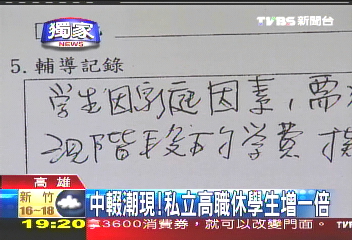 獨家
NEWS
TVBS 新聞台
5. 輔導記錄
学生因家庭因素,需
現階段的学費
高雄
新竹
16~18
中輟潮現!私立高職休學生增一倍
19:20
拿3600消費券,就可以改變門面。